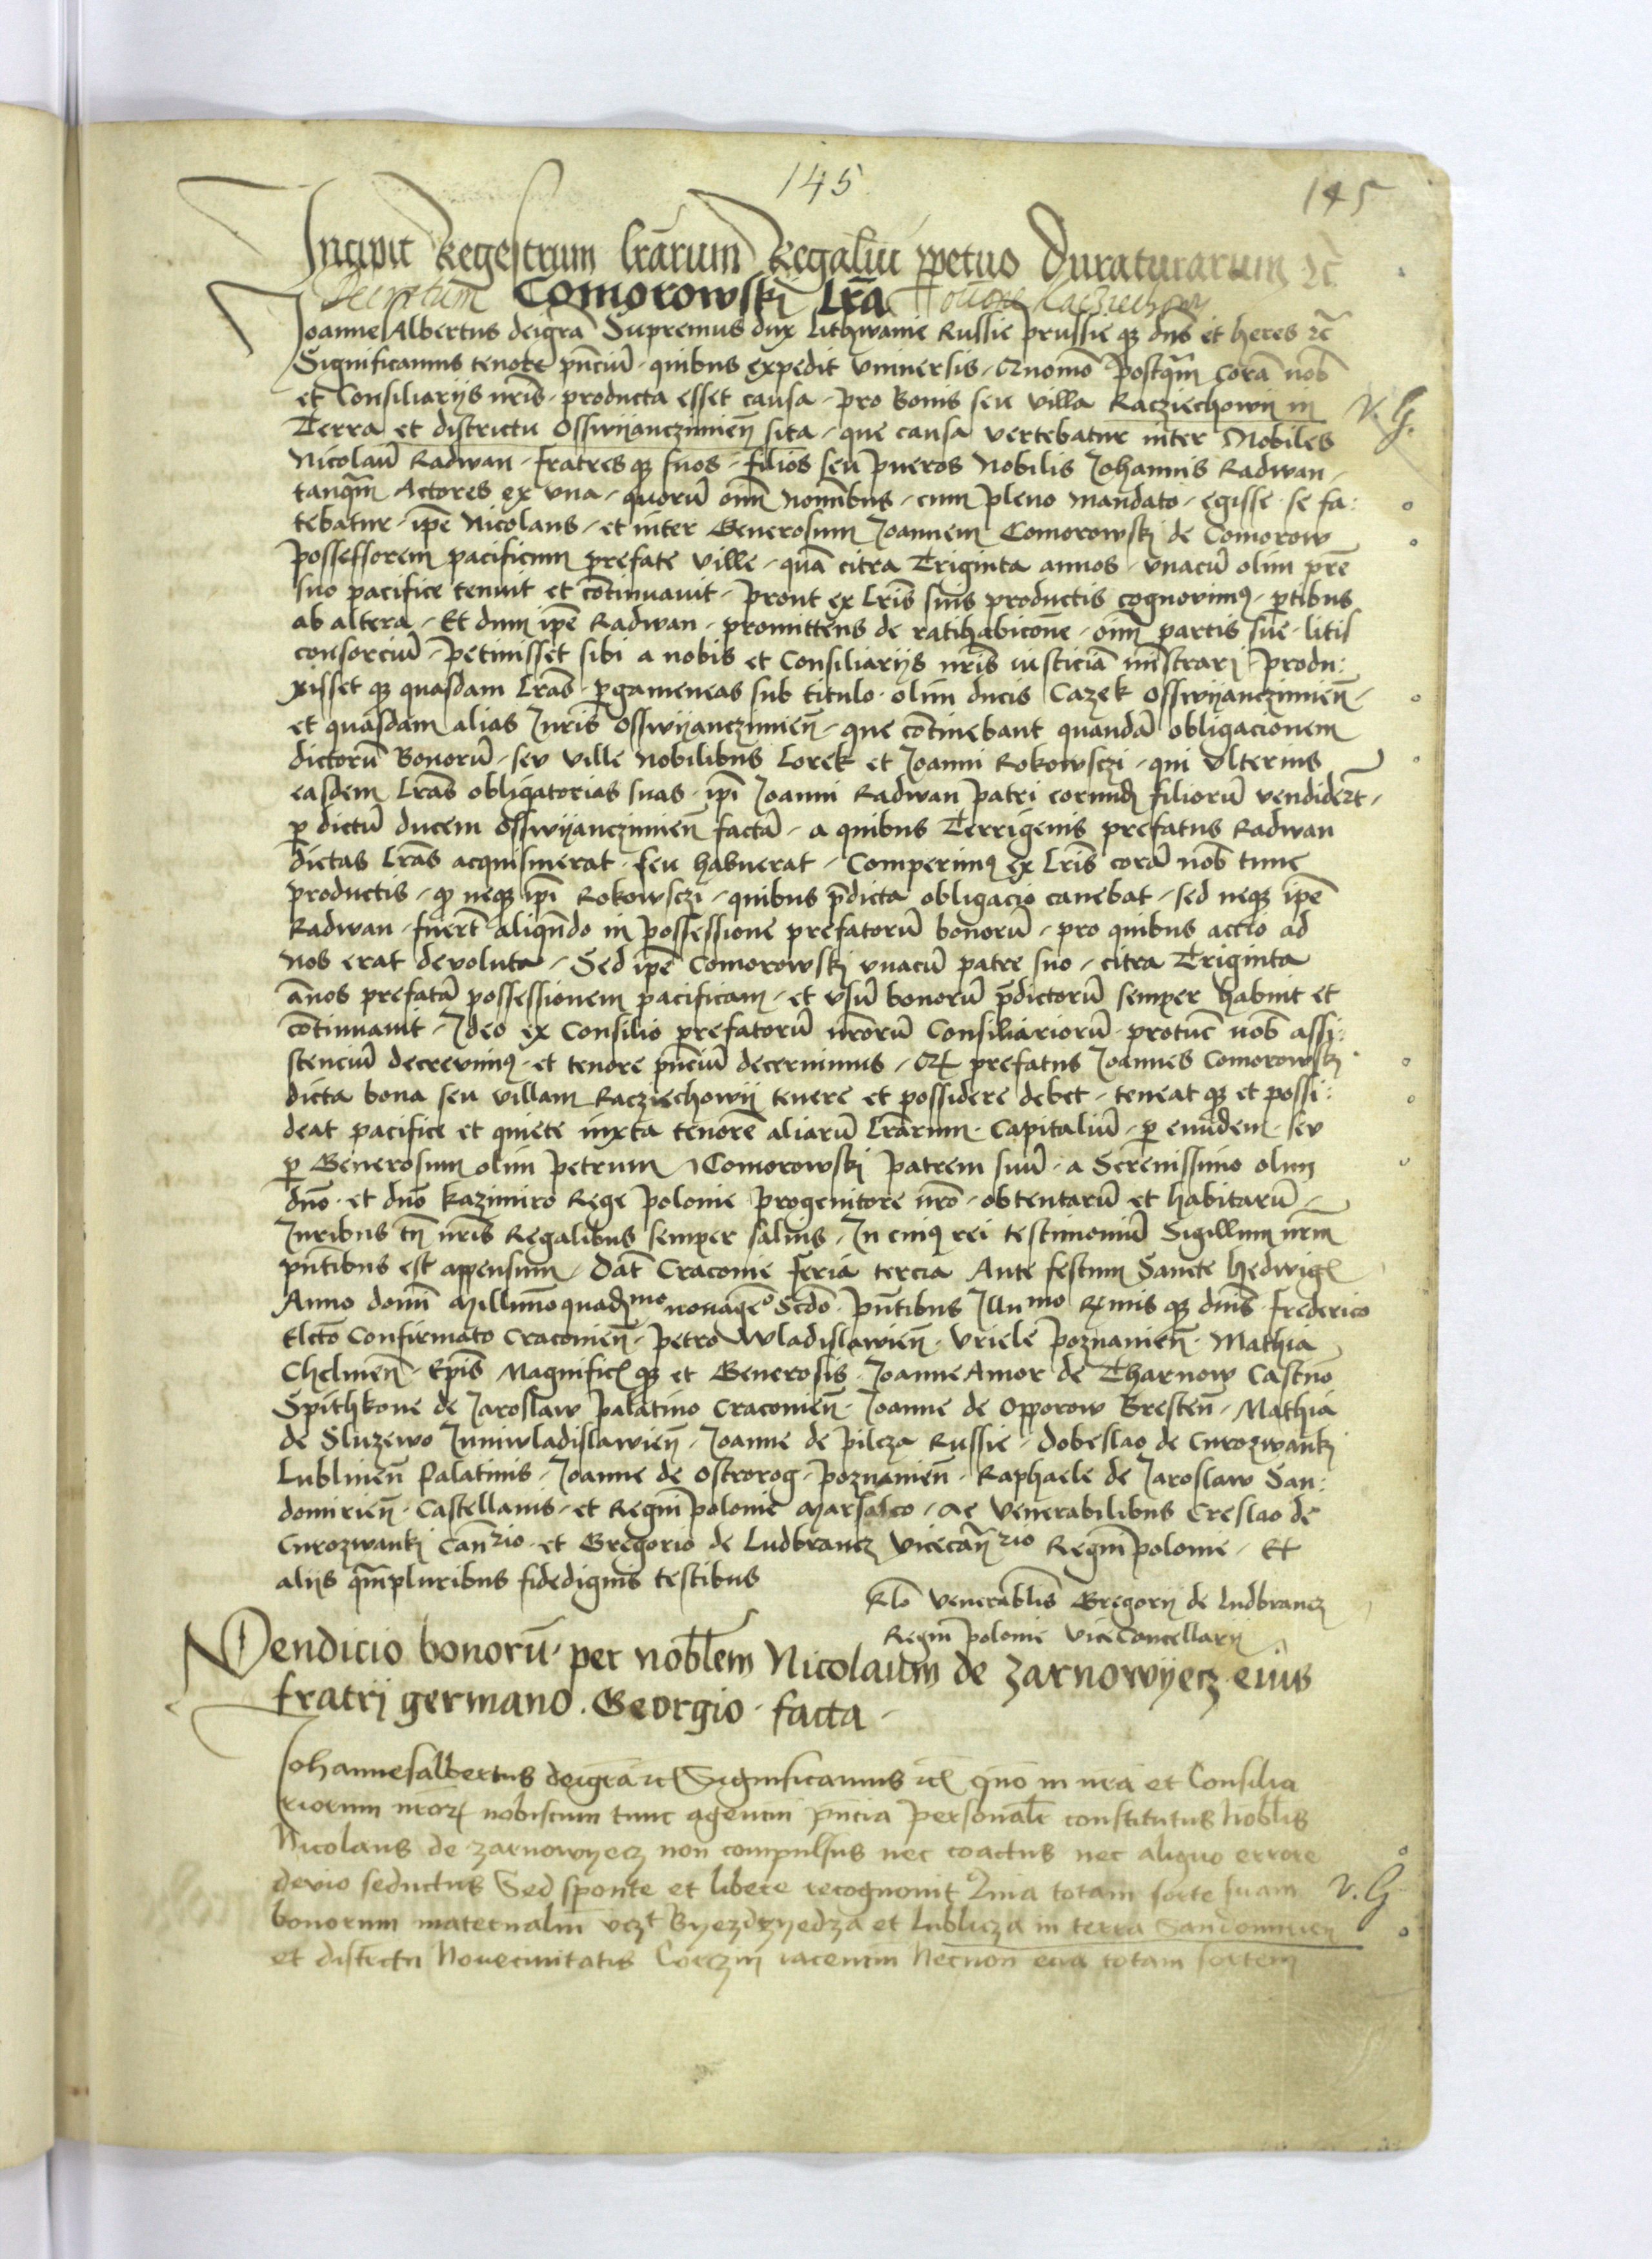 145
145
Incipit Regestrum lrarum Regaliu ppetuo Duraturarum rc
Decretum Comorowski Lra
Joanne Albertus deigra Supremus dux Lithwanie Russie prussie qz dns et heres rc
Significamus tenore pnciu quibus expedit vniuersis Quomo postqm cora nob
et Consiliarijs nris producta esset causa pro Bonis seu villa Racziechowy in
v. G.
Terra et districtu Osswijanczimien sita que causa vertebatur inter Nobiles
Nicolau Radwan fratres qz suos filios seu pueros Nobilis Johannis Radwan
tanqm Actores ex vna quoru oim nominibus cum pleno mandato egisse se fa:
tebatur ipe Nicolaus et inter Generosum Joannem Comorowski de Comorow
possessorem pacificum prefate ville qua citra Triginta annos vnacu olim pre
suo pacifice tenuit et continuauit prout ex lris suis productis cognouimus ptibus
ab altera Et dum ipe Radwan promittens de ratihabicone oim partis sue litis
consorciu petiuisset sibi a nobis et Consiliarijs nris iusticia mistrari produ:
xisset qz quasdam lras pgameneas sub titulo olim ducis Cazek Osswijanczimien
et quasdam alias Juris Osswijanczimien que continebant quanda obligacionem
dictoru Bonoru seu ville nobilibus Lorek et Joanni Rokowsczi qui vlterius
easdem lras obligatorias suas ipi Joanni Radwan patri eorund filioru vendidert
p dictu ducem Osswijanczimien facta a quibus Terrigenis prefatus Radwan
dictas lras acquisiuerat seu habuerat Comperimus ex lris cora nob tunc
productis q neqz ipi Rokowsczi quibus pdicta obligacio canebat sed neqz ipe
Radwan fuert aliqndo in possessione prefatoru bonoru pro quibus accio ad
nos erat deuoluta Sed ipe Comorowski vnacu patre suo citra Triginta
anos prefata possessionem pacificam et vsu bonoru pdictoru semper habuit et
continuauit Ideo ex Consilio prefatoru nroru Consiliarioru protunc nob assi:
stenciu decreuimus et tenore pnciu decernimus Qz prefatus Joannes Comorowski
dicta bona seu villam Racziechowij tenere et possidere debet teneat qz et possi:
deat pacifice et quiete iuxta tenore aliaru lrarum Capitaliu p eundem seu
p Generosum olim petrum Comorowski patrem suu a Serenissimo olim
dno et dno kazimiro Rege polonie progenitore nro obtentaru et habitaru
Juribus tn nris Regalibus semper saluis In cuius rei testimoniu Sigillum nrm
pntibus est appensum Dat Cracouie feria tercia Ante festum Sancte hedwigis
Anno domi Millimo quadmo nonageo Scdo pntibus Illumo Rmis qz dnis frederico
Electo Confirmato Cracouien petro Wladislauien Vriele poznanien Mathia
Chelmen Epis Magnificis qz et Generosis Joanne Amor de Tharnow Castno
Spithkone de Jaroslaw palatino Cracouien Joanne de Opporow Bresten Mathia
de Sluzewo Juniwladislauien Joanne de pilcza Russie Dobeslao de Curozwanki
Lublinen Palatinis Joanne de Ostrorog poznanien Raphaele de Jaroslaw San:
domirien Castellanis et Regni polonie Marsalco Ac Venerabilibus Creslao de
Curozwanki Canrio et Gregorio de Ludbrancz Vicecanrio Regni polonie Et
alijs qmpluribus fidedignis testibus
Rlo Venerablis Gregorij de Ludbrancz
Regni polonie ViceCancellarij
Vendicio bonoru per noblem Nicolaum de Zarnowijecz eius
fratri germano Georgio facta
Johannesalbertus deigra rc Significamus rc quo in nra et Consilia
riorum nror nobiscum tunc agencm pncia personalr constitutus Noblis
Nicolaus de Zarnowyecz non compulsus nec coactus nec aliquo errore
deuio seductus Sed sponte et libere recognouit Quia totam sorte suam
v. G
bonorum maternaliu vczt Byezdzyedza et Lublicza in terra Sandomirien
et districtu Nouecivitatis Corczin iacencm Necnon ecia totam sortem